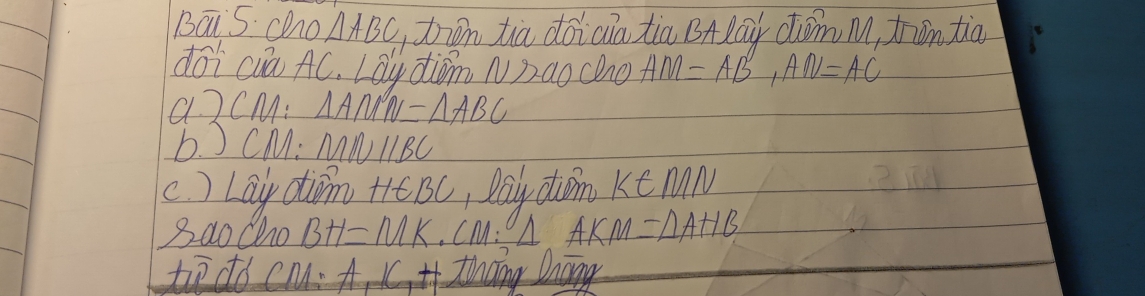 Bài 5: Cho ΔABC, trên tia đối của tia BA lấy điểm M, trên tia
đối của AC. Lấy điểm N sao cho AM = AB, AN = AC
a.) CM: ΔAMN = ΔABC
b.) CM: MN // BC
c.) Lấy điểm H ∈ BC, lấy điểm K ∈ MN
sao cho BH = MK. CM: Δ AKM = ΔAHB
từ đó CM: A, K, H thẳng hàng